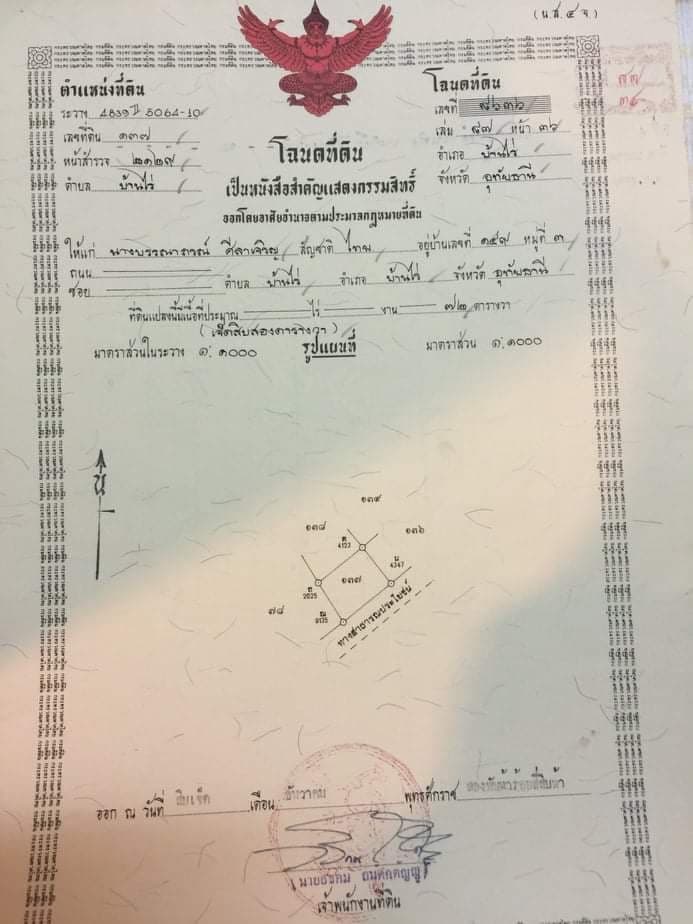 (น.ส.๔ จ.)
ตำแหน่งที่ดิน
ระวาง 4839 II 5064-10
เลขที่ดิน ๑๓๗
หน้าสำรวจ ๒๑๒๙
ตำบล บ้านไร่
โฉนดที่ดิน
เลขที่ ๘๖๓๖
เล่ม ๘๗ หน้า ๓๖
อำเภอ บ้านไร่
จังหวัด อุทัยธานี
โฉนดที่ดิน
เป็นหนังสือสำคัญแสดงกรรมสิทธิ์
ออกโดยอาศัยอำนาจตามประมวลกฎหมายที่ดิน
ให้แก่ นางบรรณาภรณ์ สัญชาติ ไทย อยู่บ้านเลขที่ ๑๕๙ หมู่ที่ ๓
ถนน
ซอย ตำบล บ้านไร่ อำเภอ บ้านไร่ จังหวัด อุทัยธานี
ที่ดินแปลงนี้มีเนื้อที่ประมาณ ไร่ งาน ๗๒ ตารางวา
(เจ็ดสิบสองตารางวา)
มาตราส่วนในระวาง ๑:๑๐๐๐ รูปแผนที่ มาตราส่วน ๑:๑๐๐๐
น
๑๓๙
๑๓๘
๑๓๖
ต
4122
น
4347
๑๓๗
ถ
2025
๗๘
ณ
9135
ทางสาธารณประโยชน์
ออก ณ วันที่ สิบเจ็ด เดือน ธันวาคม พุทธศักราช สองพันห้าร้อยสี่สิบห้า
เจ้าพนักงานที่ดิน